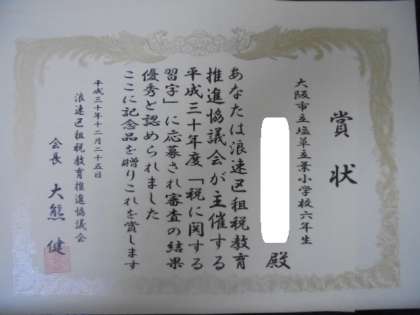 賞状
大阪市立塩草立葉小学校六年生
殿
あなたは浪速区租税教育
推進協議会が主催する
平成三十年度「税に関する
習字」に応募され審査の結果
優秀と認められました
ここに記念品を贈りこれを賞します
平成三十年十二月二十五日
浪速区租税教育推進協議会
会長 大熊健